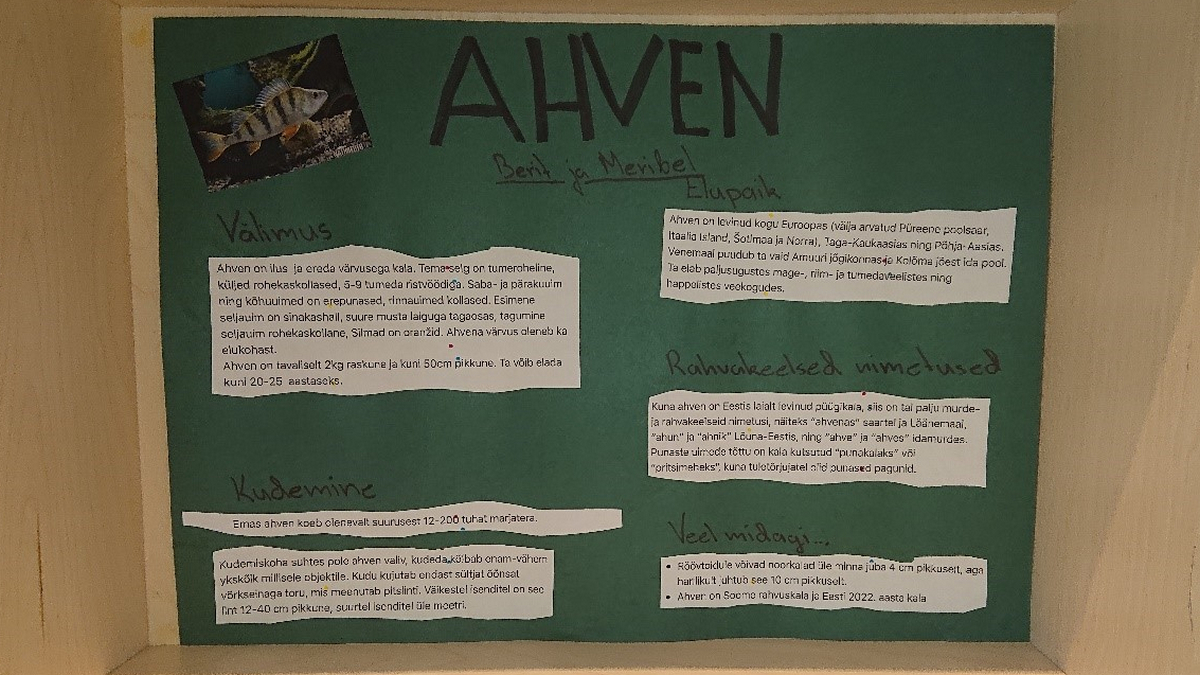 AHVEN
Berit ja Meribel
Välimus
Ahven on ilus ja ereda värvusega kala. Tema selg on tumeroheline,
küljed rohekaskollased, 5-9 tumeda ristvöödiga. Saba- ja pärakuuim
ning kõhuuimed on erepunased, rinnauimed kollased. Esimene
seljauim on sinakashall, suure musta laiguga tagaosas, tagumine
seljauim rohekaskollane, Silmad on oranžid. Ahvena värvus oleneb ka
elukohast.
Ahven on tavaliselt 2kg raskune ja kuni 50cm pikkune. Ta võib elada
kuni 20-25 aastaseks.
Kudemine
Emas ahven koeb olenevalt suurusest 12-200 tuhat marjatera.
Kudemiskoha suhtes pole ahven valiv, kudeda kõlbab enam-vähem
ykskõik millisele objektile. Kudu kujutab endast sültjat õõnsat
võrkseinaga toru, mis meenutab pitslinti. Väikestel isenditel on see
lint 12-40 cm pikkune, suurtel isenditel üle meetri.
Elupaik
Ahven on levinud kogu Euroopas (välja arvatud Püreene poolsaar,
Itaalia Island, Šotimaa ja Norra), Taga-Kaukaasias ning Põhja-Aasias.
Venemaal puudub ta vaid Amuuri jõgikonnas ja Kolõma jõest ida pool.
Ta elab paljusugustes mage-, riim- ja tumedaveelistes ning
happelistes veekogudes.
Rahvakeelsed nimetused
Kuna ahven on Eestis laialt levinud püügikala, siis on tal palju murde-
ja rahvakeelseid nimetusi, näiteks "ahvenas" saartel ja Läänemaal,
"ahun" ja "ahnik" Lõuna-Eestis, ning "ahve" ja "ahves" idamurdes.
Punaste uimede tõttu on kala kutsutud "punakalaks" või
"pritsimeheks", kuna tuletõrjujatel olid punased pagunid.
Veel midagi...
• Röövtoidule võivad noorkalad üle minna juba 4 cm pikkuselt, aga
harilikult juhtub see 10 cm pikkuselt.
• Ahven on Soome rahvuskala ja Eesti 2022. aasta kala